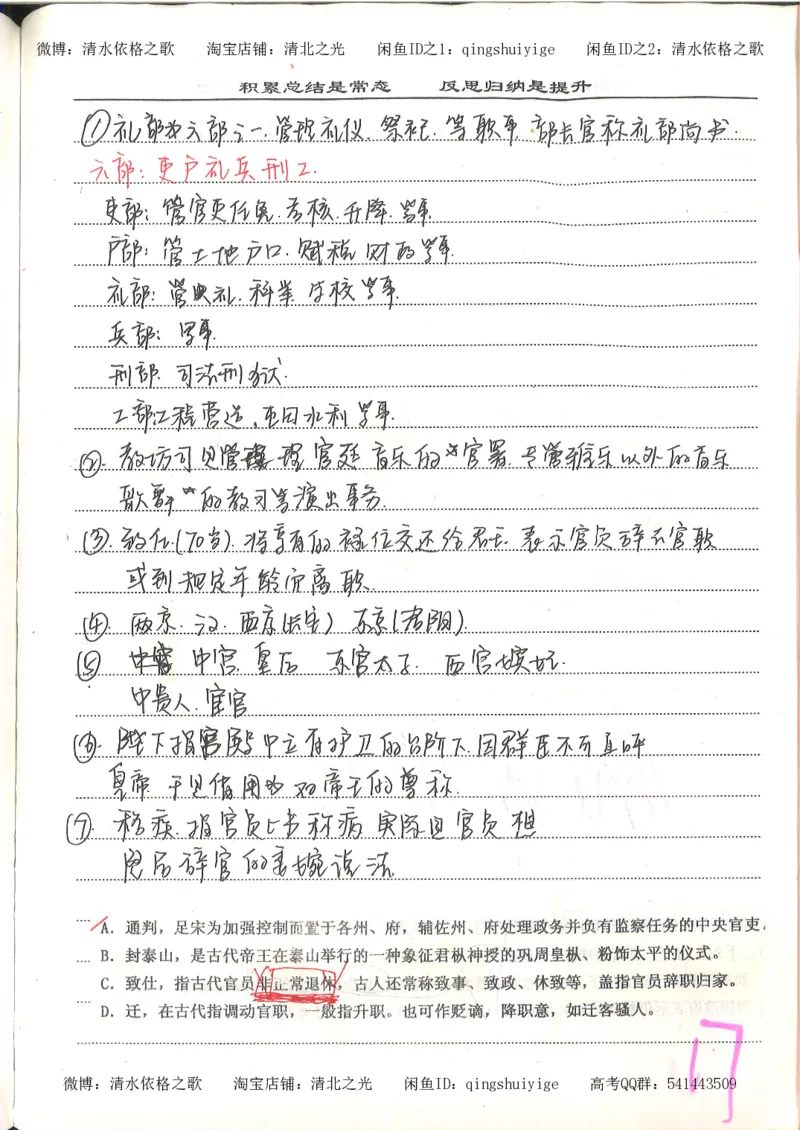 微博：清水依格之歌 淘宝店铺：清北之光 闲鱼ID之1：qingshuiyige 闲鱼ID之2：清水依格之歌
积累总结是常态 反思归纳是提升
①礼部为六部之一.管理礼仪.祭祀.等职事.部长官称礼部尚书.
六部：吏户礼兵刑工.
吏部：管官吏任免.考核.升降.等事.
户部：管土地户口.赋税财政等事.
礼部：管典礼.科举.学校等事.
兵部：军事.
刑部.司法刑狱.
工部工程营造,屯田水利等事.
②.教坊司 管理宫廷音乐的官署.专管雅乐以外的音乐
歌舞的教习等演出事务.
③.致仕(70岁).将享有的禄位交还给君王.表示官员辞去官职
或到规定年龄而离职.
④.两京.汉.西京(长安) 东京(洛阳).
⑤ 中宫.皇后 东宫太子. 西宫嫔妃.
中贵人.宦官
⑥.陛下指宫殿中立有护卫的台阶下.因群臣不可直呼
皇帝 于是借用为对帝王的尊称.
⑦.称疾.指官员上书称病 实际是官员想
退居辞官的委婉说法
A．通判，足宋为加强控制而置于各州、府，辅佐州、府处理政务并负有监察任务的中央官吏。
B．封泰山，是古代帝王在泰山举行的一种象征君枞神授的巩周皇枞、粉饰太平的仪式。
C．致仕，指古代官员非正常退休，古人还常称致事、致政、休致等，盖指官员辞职归家。
D．迁，在古代指调动官职，一般指升职。也可作贬谪，降职意，如迁客骚人。
17
微博：清水依格之歌 淘宝店铺：清北之光 闲鱼ID：qingshuiyige 高考QQ群：541443509